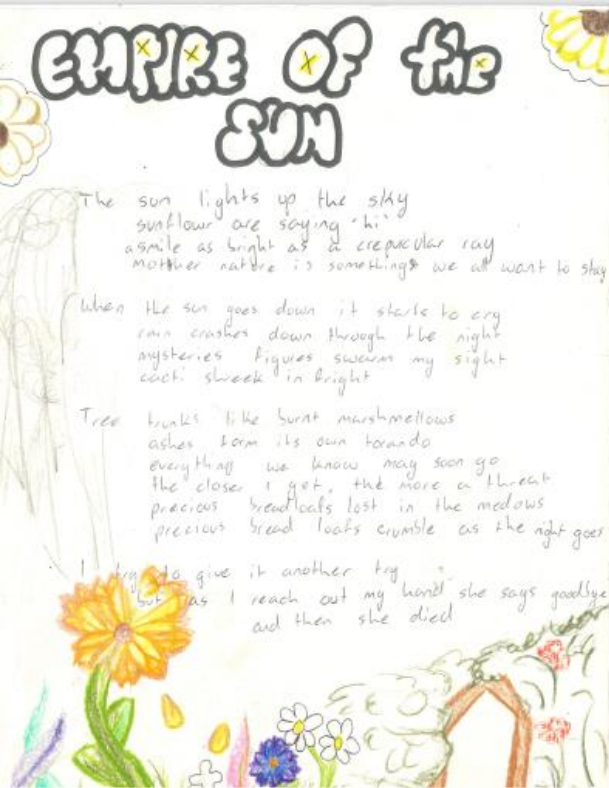 EMPIRE OF the
SUN
The sun lights up the sky
sunflowr are saying 'hi'
asmile as bright as a crepucular ray
mother nature is somethings we all want to stay
When the sun goes down it starts to cry
rain crashes down through the night
mysteries figures swarm my sight
cacti shreek in fright
Tree trunks like burnt marshmellows
ashes form its own torando
everything we know may soon go
the closer I get, the more a threat
precious breadloafs lost in the medows
precious bread loafs crumble as the night goes
I try to give it another try
but as I reach out my hand she says goodbye
and then she died